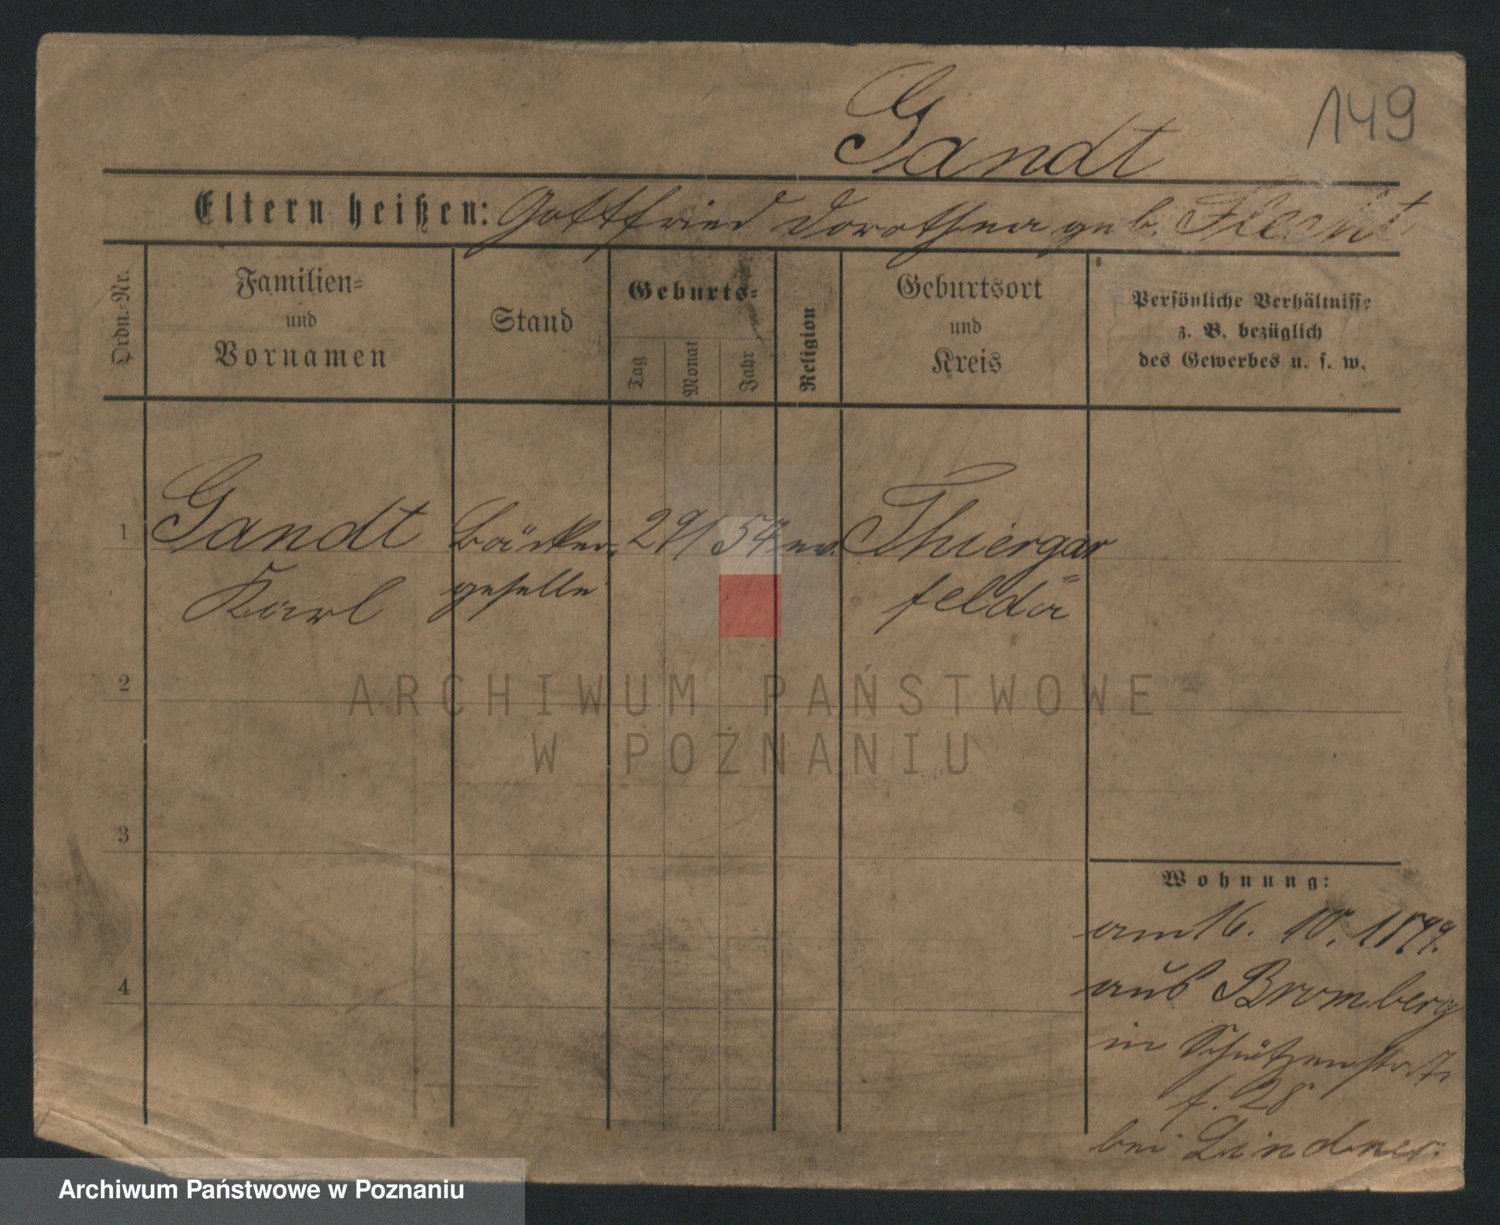 149
Gandt
Eltern heißen: Gottfried Dorothea geb. Flecht
Ordn.-Nr.
Familien-
und
Vornamen
Stand
Geburts-
Tag
Monat
Jahr
Religion
Geburtsort
und
Kreis
Persönliche Verhältnisse
z. B. bezüglich
des Gewerbes u. s. w.
1 Gandt Bäcker- 29/ 54 ev. Thiergar
Karl geselle felda
2
3
4
Wohnung:
am 16. 10. 1877.
aus Bromberg
in Schützenstr.
f. 28
bei Lindner.
ARCHIWUM PAŃSTWOWE
W POZNANIU
Archiwum Państwowe w Poznaniu